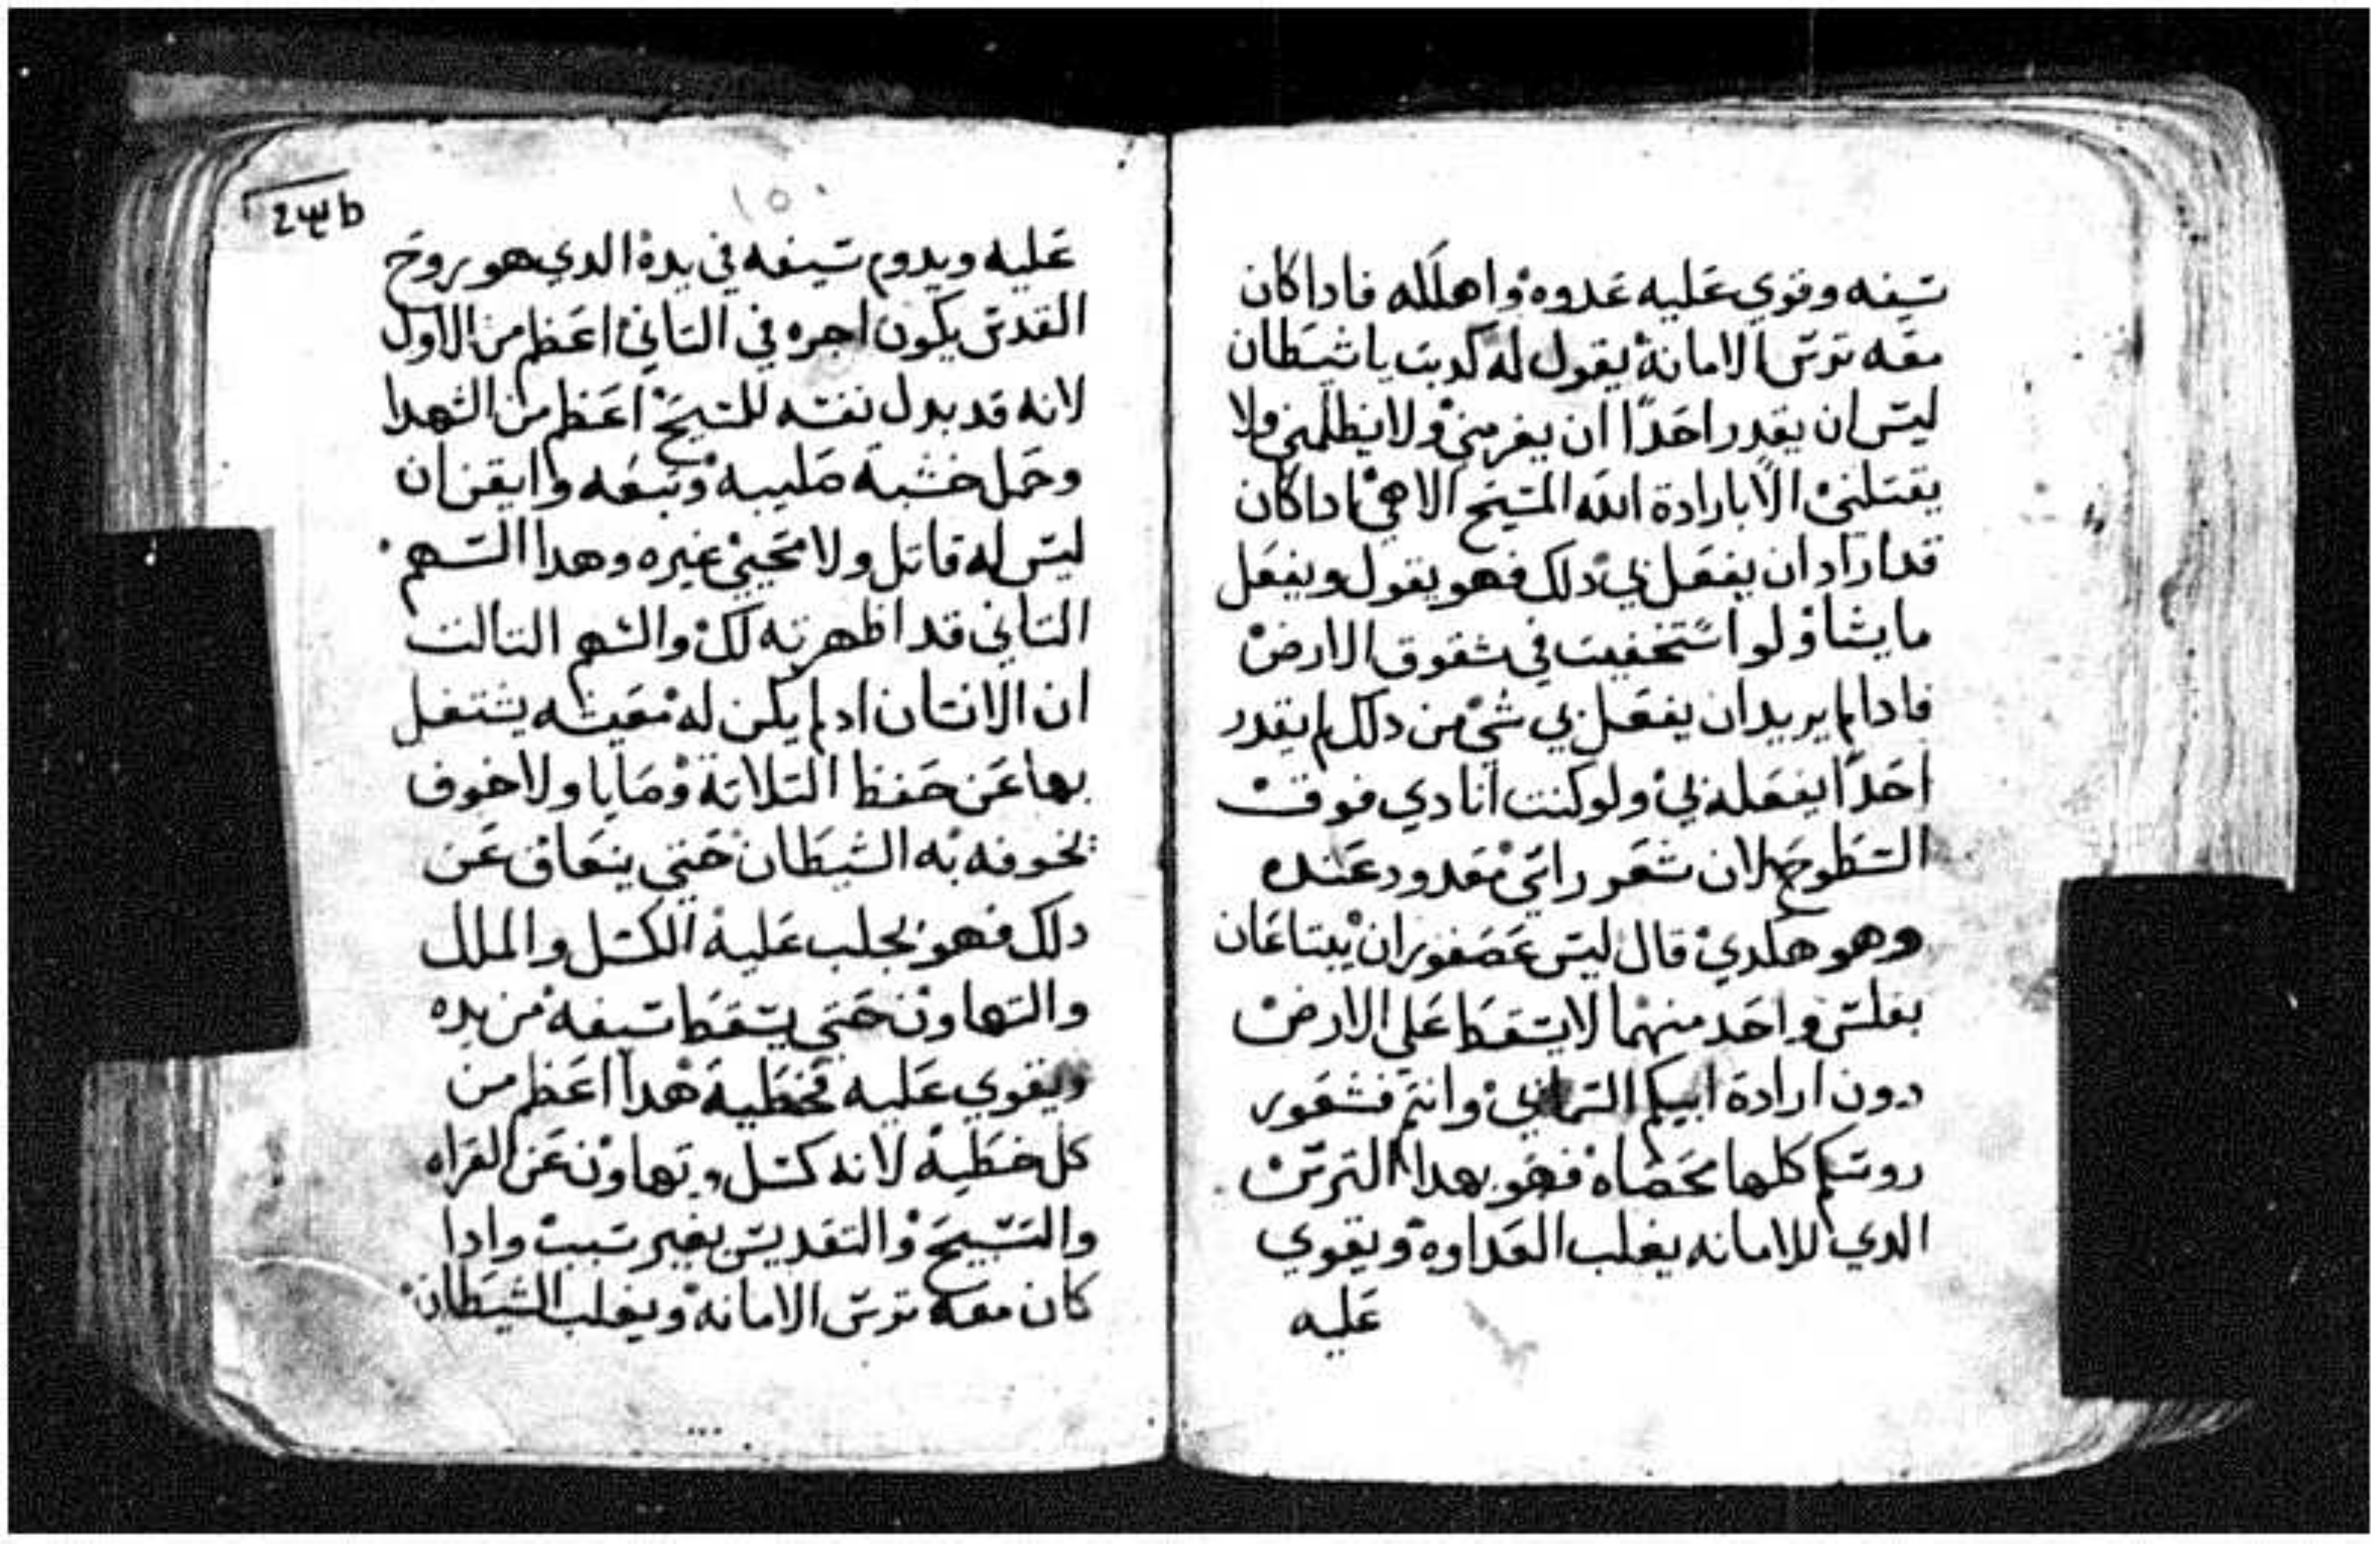 سيفه وقوي عليه عدوه واهلكه فاداكان
معه ترس الامانة يقول له كدبت يا شيطان
ليس ان يقدر احدًا ان يغرمني ولا يظلمني ولا
يقتلني الا بارادة الله المسيح الاهي اداكان
قد اراد ان يفعل بي دلك فهو يقول ويفعل
ما يشا ولو استخفيت في شقوق الارض
فادا لم يريد ان يفعل بي شي من دلك لم يقدر
احدًا يفعله بي ولو كنت انادي فوق
السطوح لان شعر راسي معدود عنده
وهو هكدي قال ليس عصفوران يبتاعان
بفلس واحد منهما لا يسقط علي الارض
دون ارادة ابيكم السماني وانتم فشعور
روسكم كلها محصاه فهو بهدا الترس
الدي للامانه يغلب العداوه ويقوي
عليه
١٥٠
عليه ويدوم سيفه في يده الدي هو روح
القدس يكون اجره في التاني اعظم من الاول
لانه قد بدل نفسه للمسيح اعظم من الشهدا
وحمل خشبة صليبه وتبعه وايقن ان
ليس له قاتل ولا محيي غيره وهدا السهم
التاني قد اظهرته لك والسهم التالت
ان الانسان اد لم يكن له معيشه يشتغل
بها عن حفظ التلاتة وصايا ولا خوف
يخوفه به الشيطان حتي ينعاق عن
دلك فهو يجلب عليه الكسل والملل
والتهاون حتي يسقط سيفه من يده
ويقوي عليه فخطية هدا اعظم من
كل خطية لانه كسل وتهاون عن القراه
والتسبيح والتقديس بغير سبب وادا
كان معه ترس الامانه ويغلب الشيطان